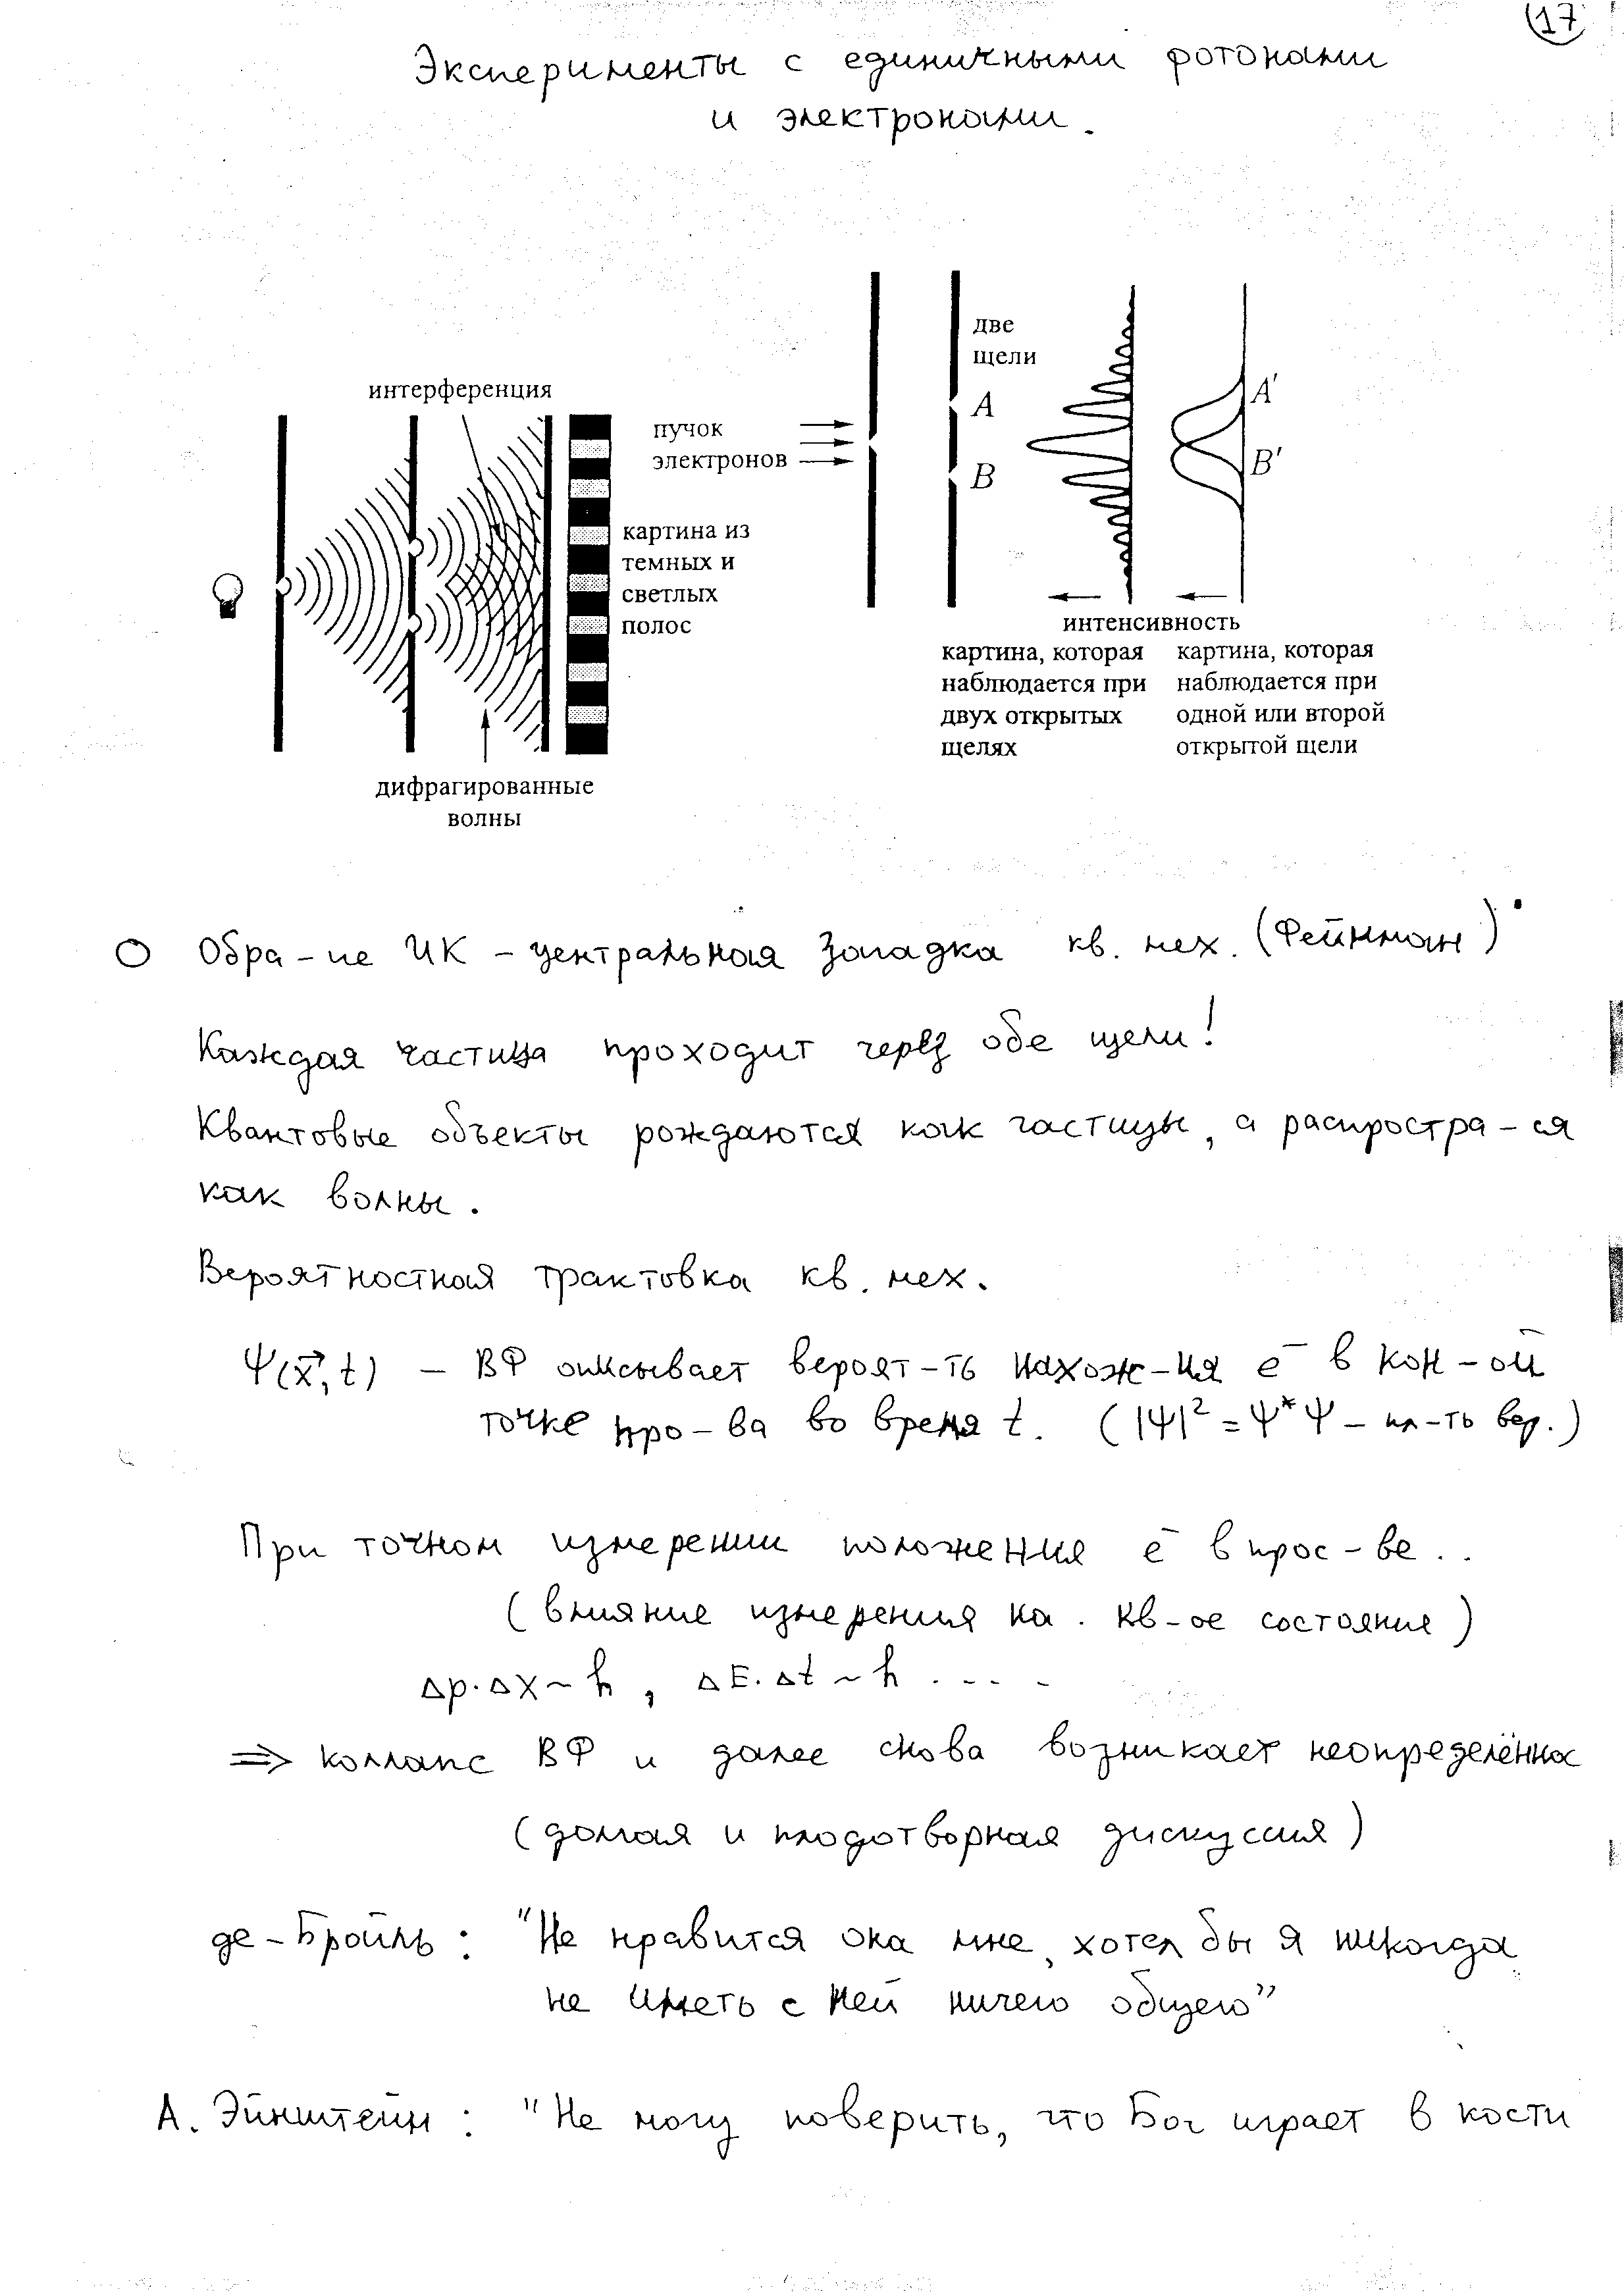 (17
Эксперименты с единичными фотонами
и электронами.
интерференция
дифрагированные
волны
картина из
темных и
светлых
полос
пучок
электронов
две
щели
A
B
A'
B'
интенсивность
картина, которая
наблюдается при
двух открытых
щелях
картина, которая
наблюдается при
одной или второй
открытой щели
Обра-ие ИК - центральная загадка кв. мех. (Фейнман)
Каждая частица проходит через обе щели!
Квантовые объекты рождаются как частицы, а распростра-ся
как волны.
Вероятностная трактовка кв. мех.
Ψ(x⃗, t) – ВФ описывает вероят-ть нахож-ия e⁻ в кон-ой
точке про-ва во время t. (|Ψ|² = Ψ*Ψ – пл-ть вер.)
При точном измерении положения e⁻ в прос-ве..
(влияние измерения на. кв-ое состояние)
Δp·Δx ~ ħ, ΔE·Δt ~ ħ ....
⇒ коллапс ВФ и далее снова возникает неопределённо
(долгая и плодотворная дискуссия)
де-Бройль: "Не нравится она мне, хотел бы я никогда
не иметь с ней ничего общего"
А. Эйнштейн: "Не могу поверить, что Бог играет в кости